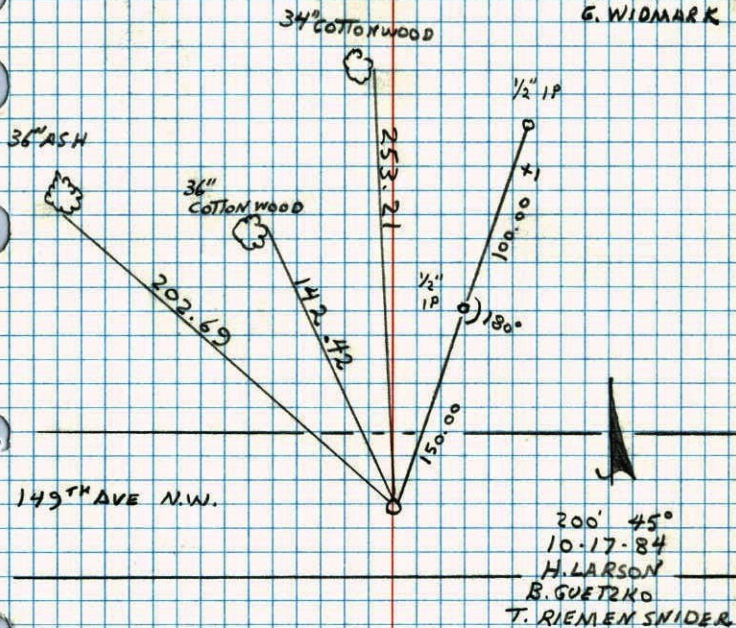 G. WIDMARK
34" COTTONWOOD
1/2" IP
36" ASH
36"
COTTONWOOD
253.21
100.00 ±
1/2"
IP
180°
202.69
142.42
150.00
149TH AVE N.W.
200' 45°
10-17-84
H. LARSON
B. GUETZKO
T. RIEMENSNIDER